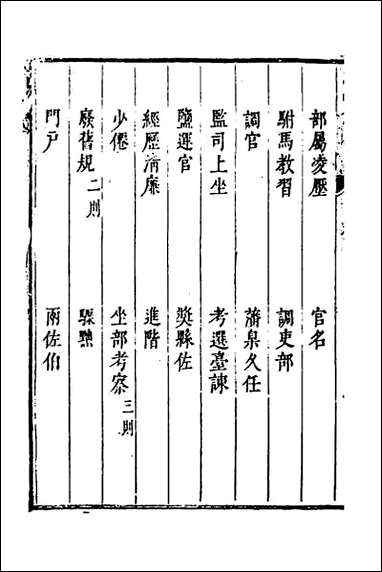 部屬凌壓 官名
駙馬教習 調吏部
調官 藩臬久任
監司上坐 考選臺諫
鹽運官 奬縣佐
經歷清廉 進階
少僊 坐部考察三則
廢舊規二則 驟
門戸 兩佐伯